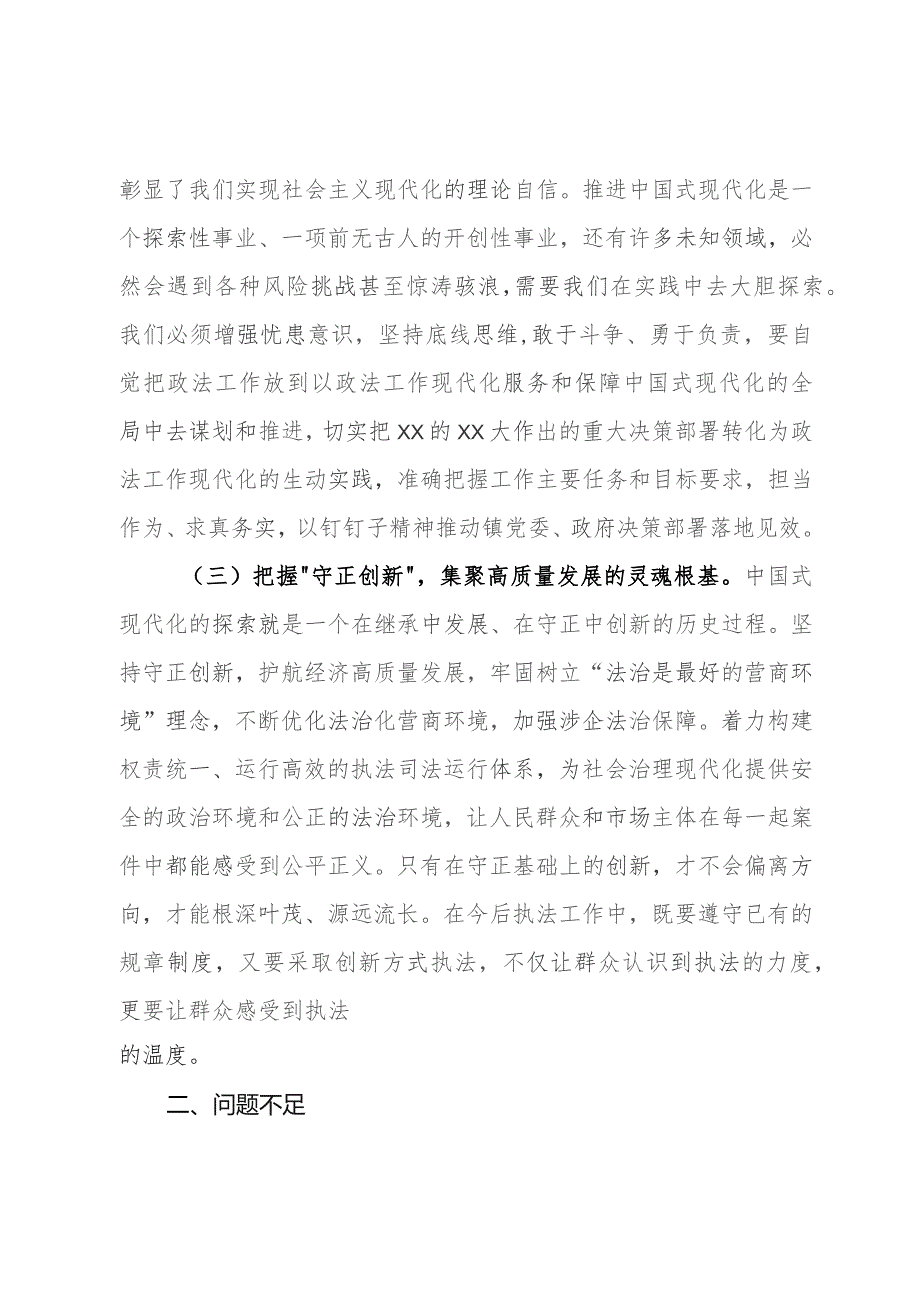 彰显了我们实现社会主义现代化的理论自信。推进中国式现代化是一
个探索性事业、一项前无古人的开创性事业，还有许多未知领域，必
然会遇到各种风险挑战甚至惊涛骇浪,需要我们在实践中去大胆探索。
我们必须增强忧患意识，坚持底线思维,敢于斗争、勇于负责，要自
觉把政法工作放到以政法工作现代化服务和保障中国式现代化的全
局中去谋划和推进，切实把XX的XX大作出的重大决策部署转化为政
法工作现代化的生动实践，准确把握工作主要任务和目标要求，担当
作为、求真务实，以钉钉子精神推动镇党委、政府决策部署落地见效。
（三）把握"守正创新"，集聚高质量发展的灵魂根基。中国式
现代化的探索就是一个在继承中发展、在守正中创新的历史过程。坚
持守正创新，护航经济高质量发展，牢固树立“法治是最好的营商环
境”理念，不断优化法治化营商环境，加强涉企法治保障。着力构建
权责统一、运行高效的执法司法运行体系，为社会治理现代化提供安
全的政治环境和公正的法治环境，让人民群众和市场主体在每一起案
件中都能感受到公平正义。只有在守正基础上的创新，才不会偏离方
向，才能根深叶茂、源远流长。在今后执法工作中，既要遵守已有的
规章制度，又要采取创新方式执法，不仅让群众认识到执法的力度，
更要让群众感受到执法
的温度。
二、问题不足